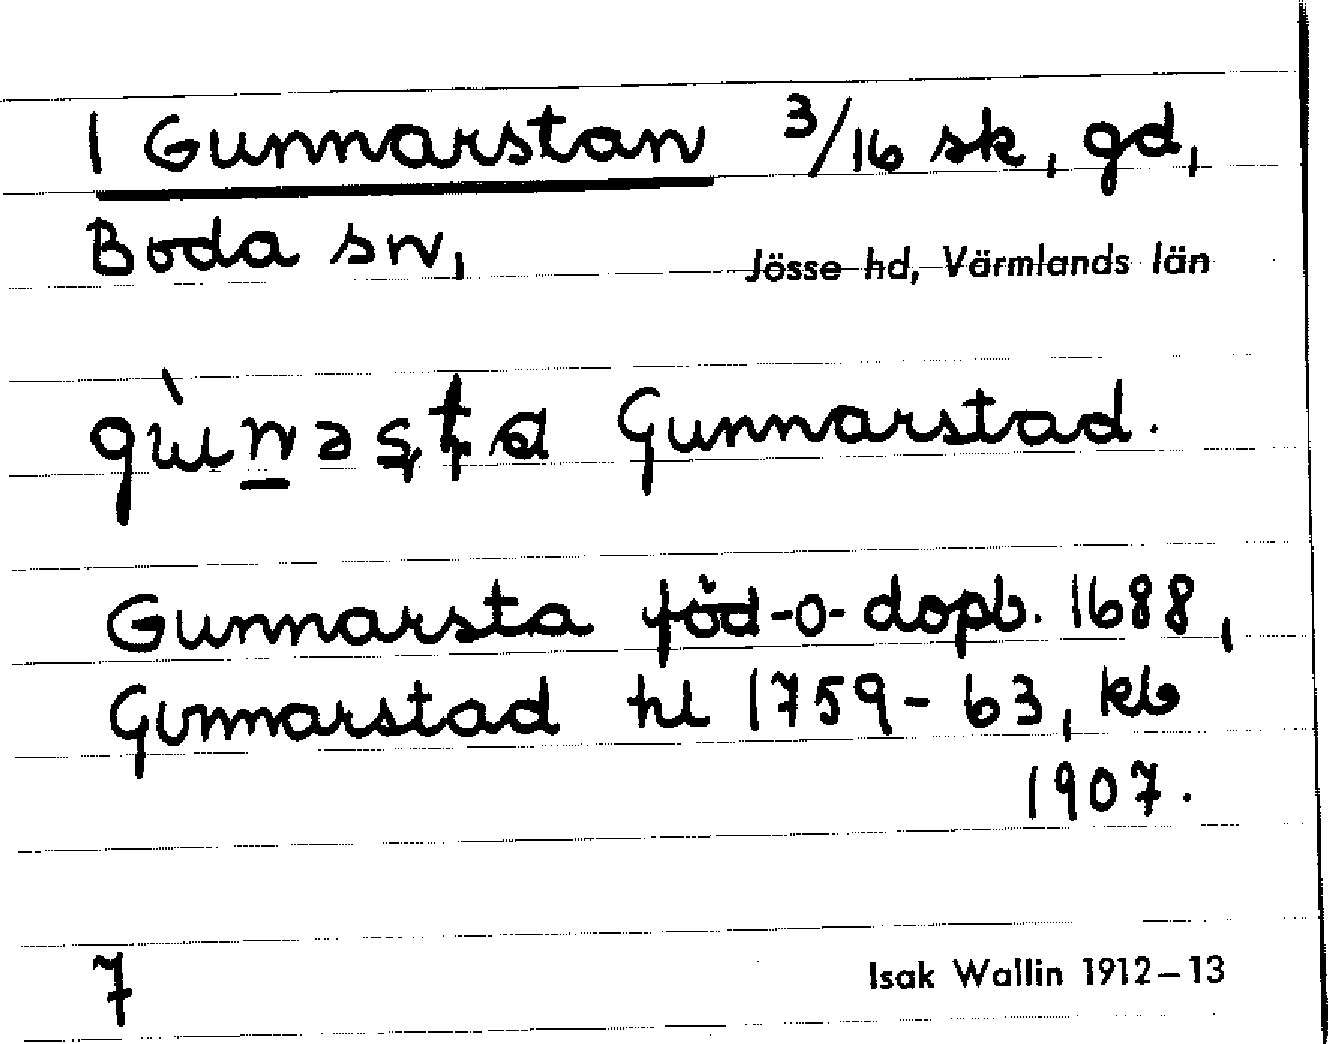 1 Gunnarstan 3/16 sk, gd,
Boda sn, Jösse hd, Värmlands län
Gunnarstad.
Gunnarsta föd-o-dopb. 1688,
Gunnarstad hl 1759-63, kb
1907.
7 Isak Wallin 1912–13